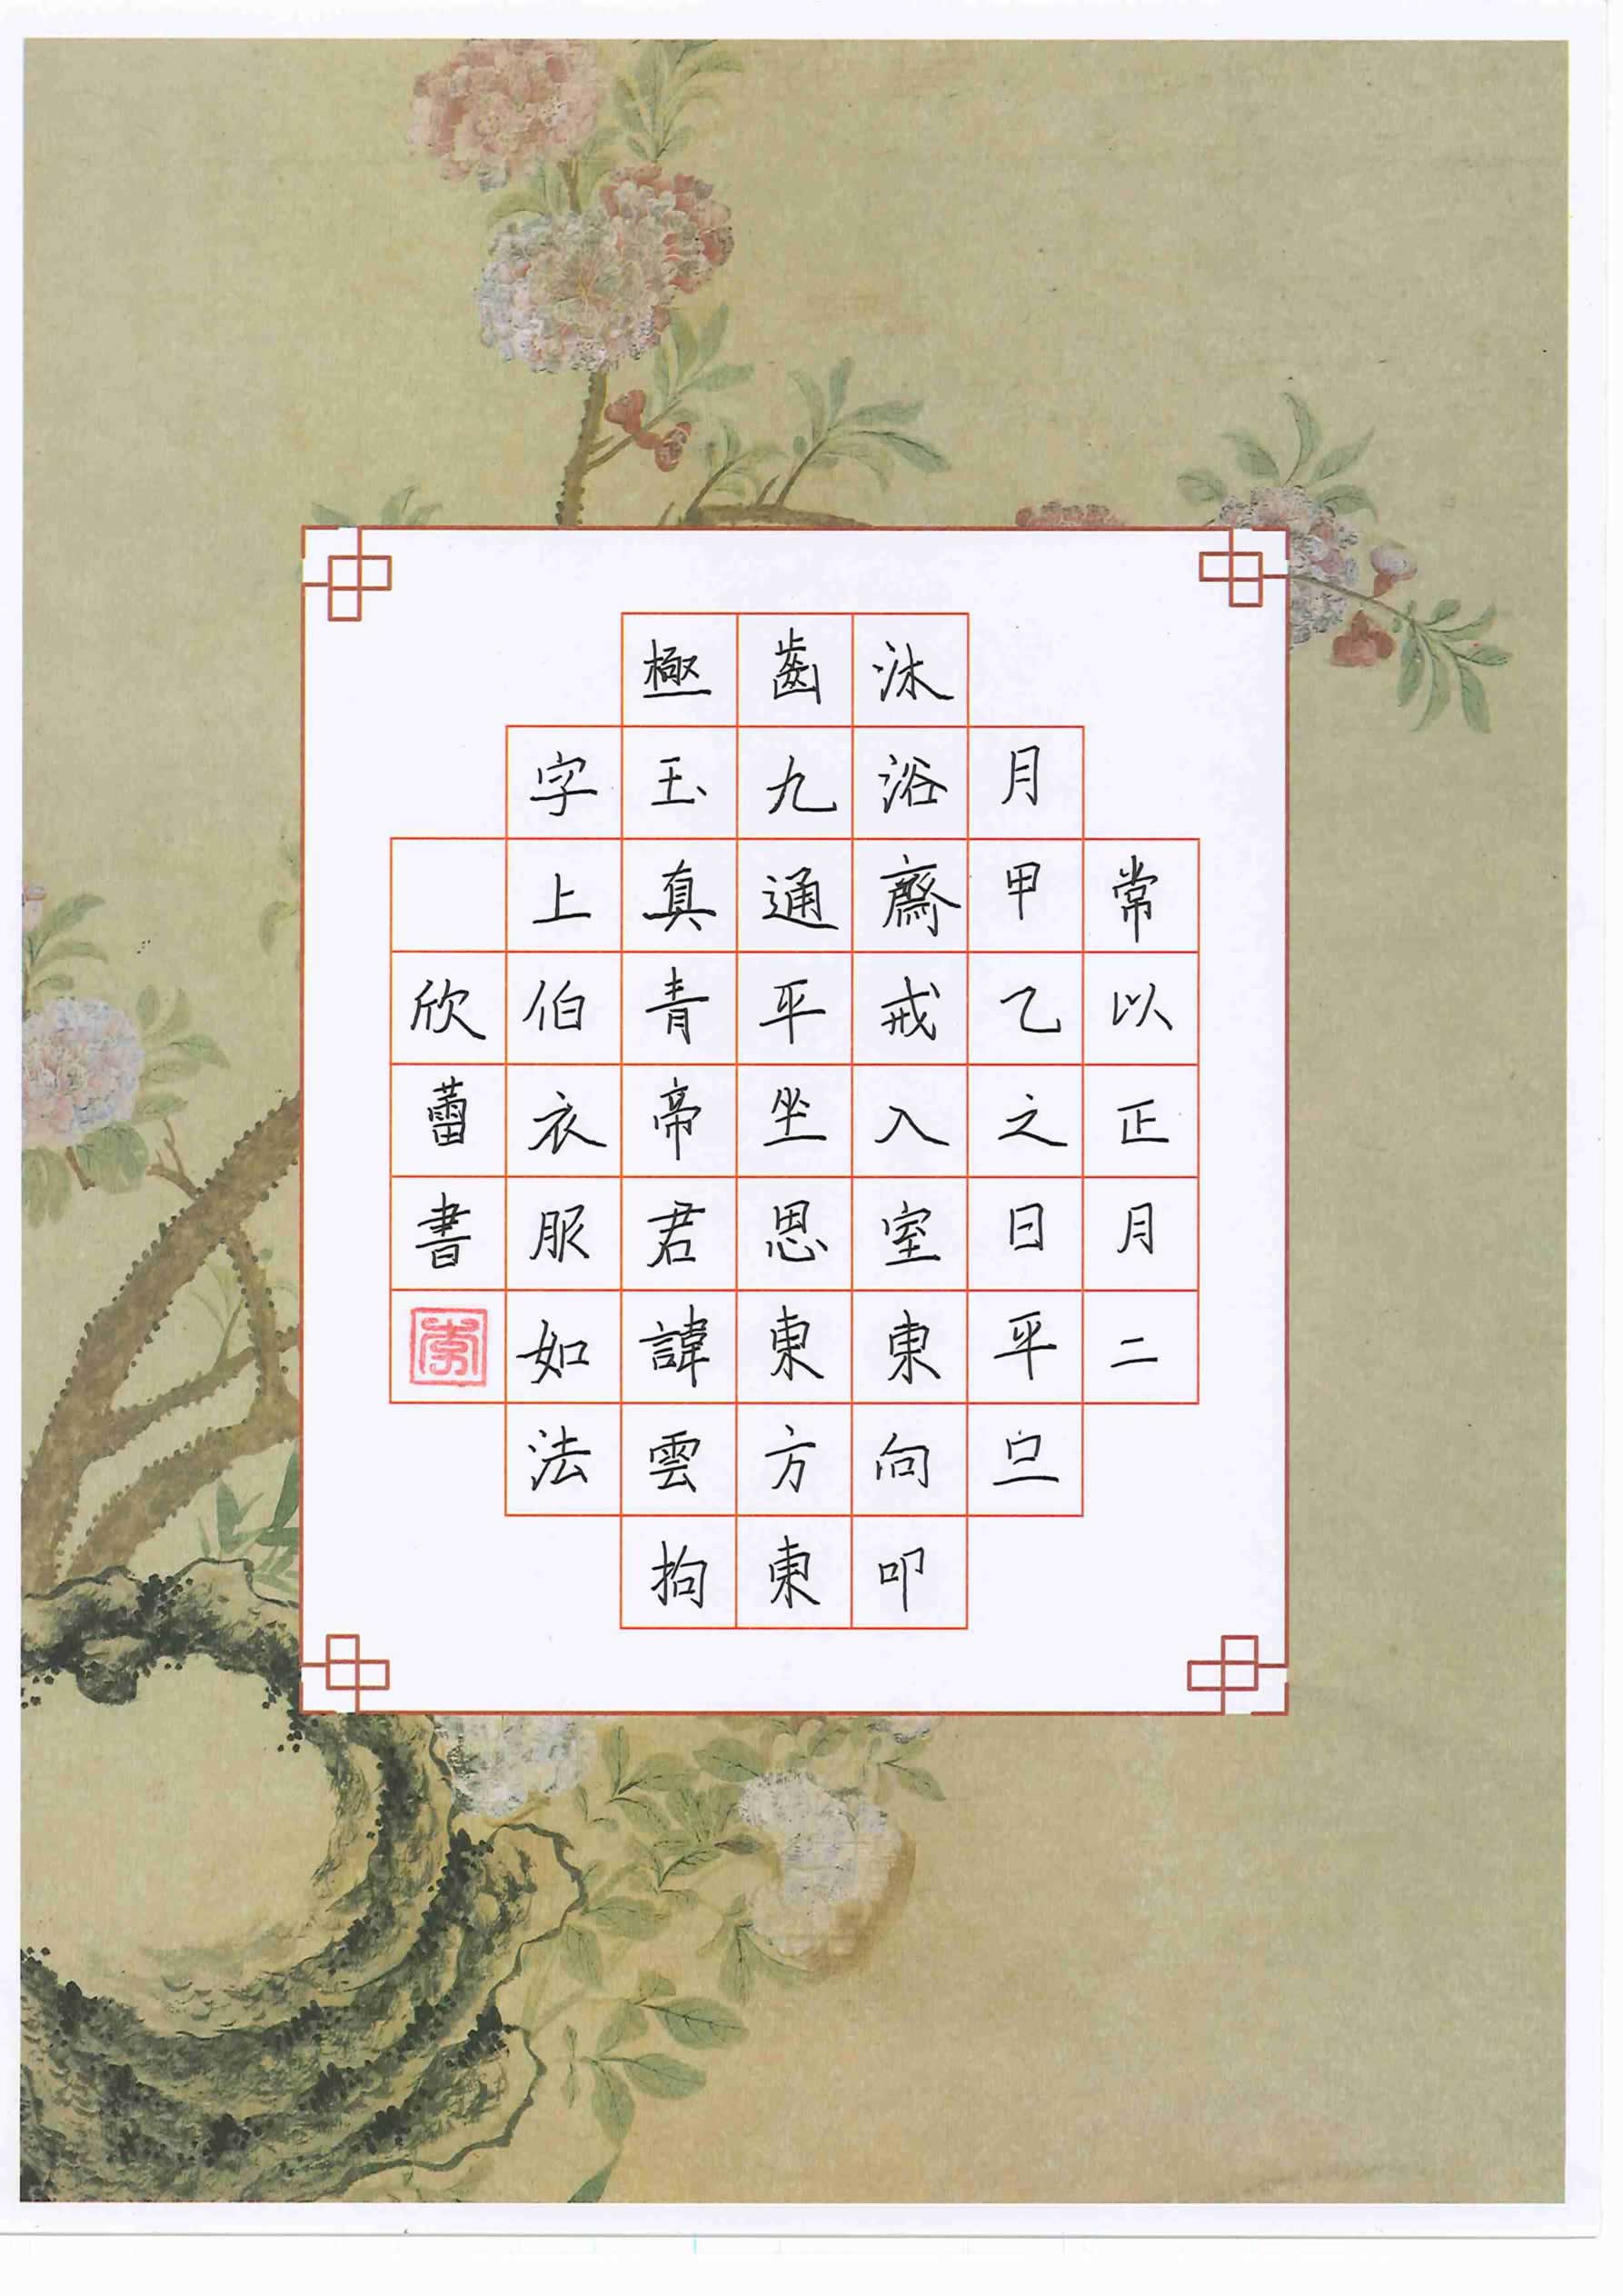 常以正月二
月甲乙之日平旦
沐浴齋戒入室東向叩
齒九通平坐思東方東
極玉真青帝君諱雲拘
字上伯衣服如法
欣蕾書